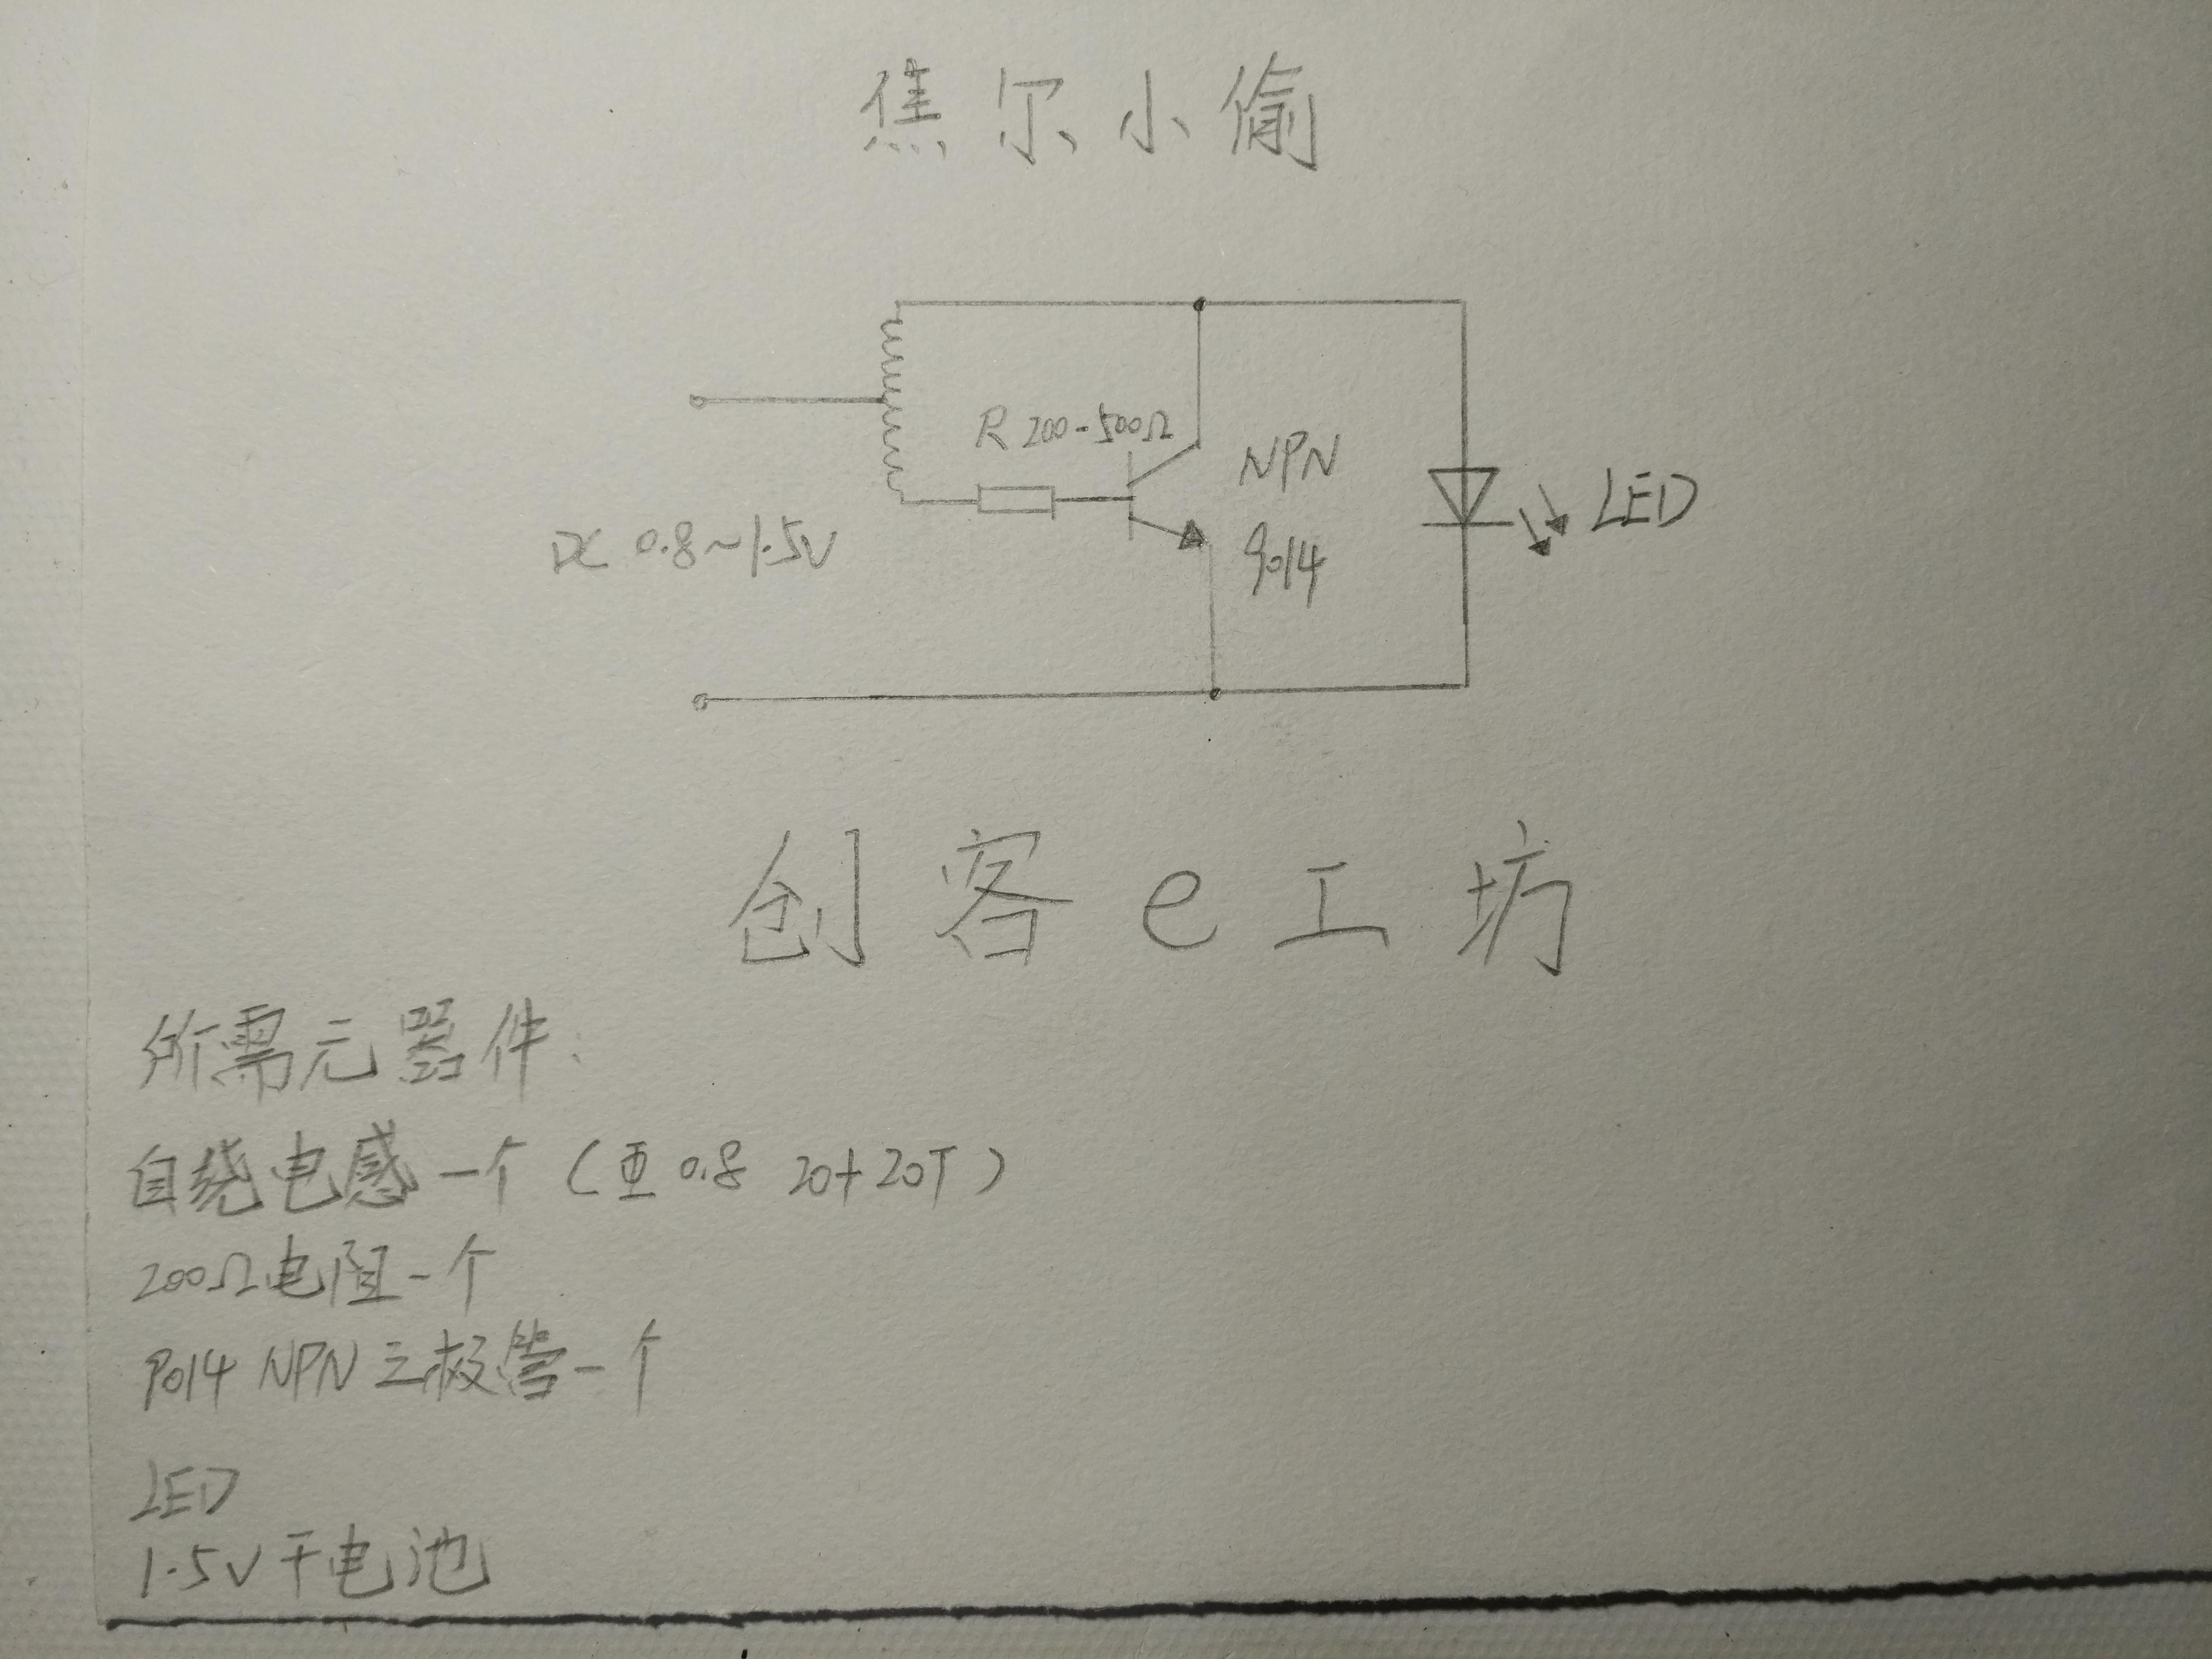 焦尔小偷
R 200-500Ω
NPN
9014
LED
DC 0.8~1.5V
创客e工坊
所需元器件:
自绕电感一个(亚0.8 20+20T)
200Ω电阻一个
9014 NPN三极管一个
LED
1.5V干电池